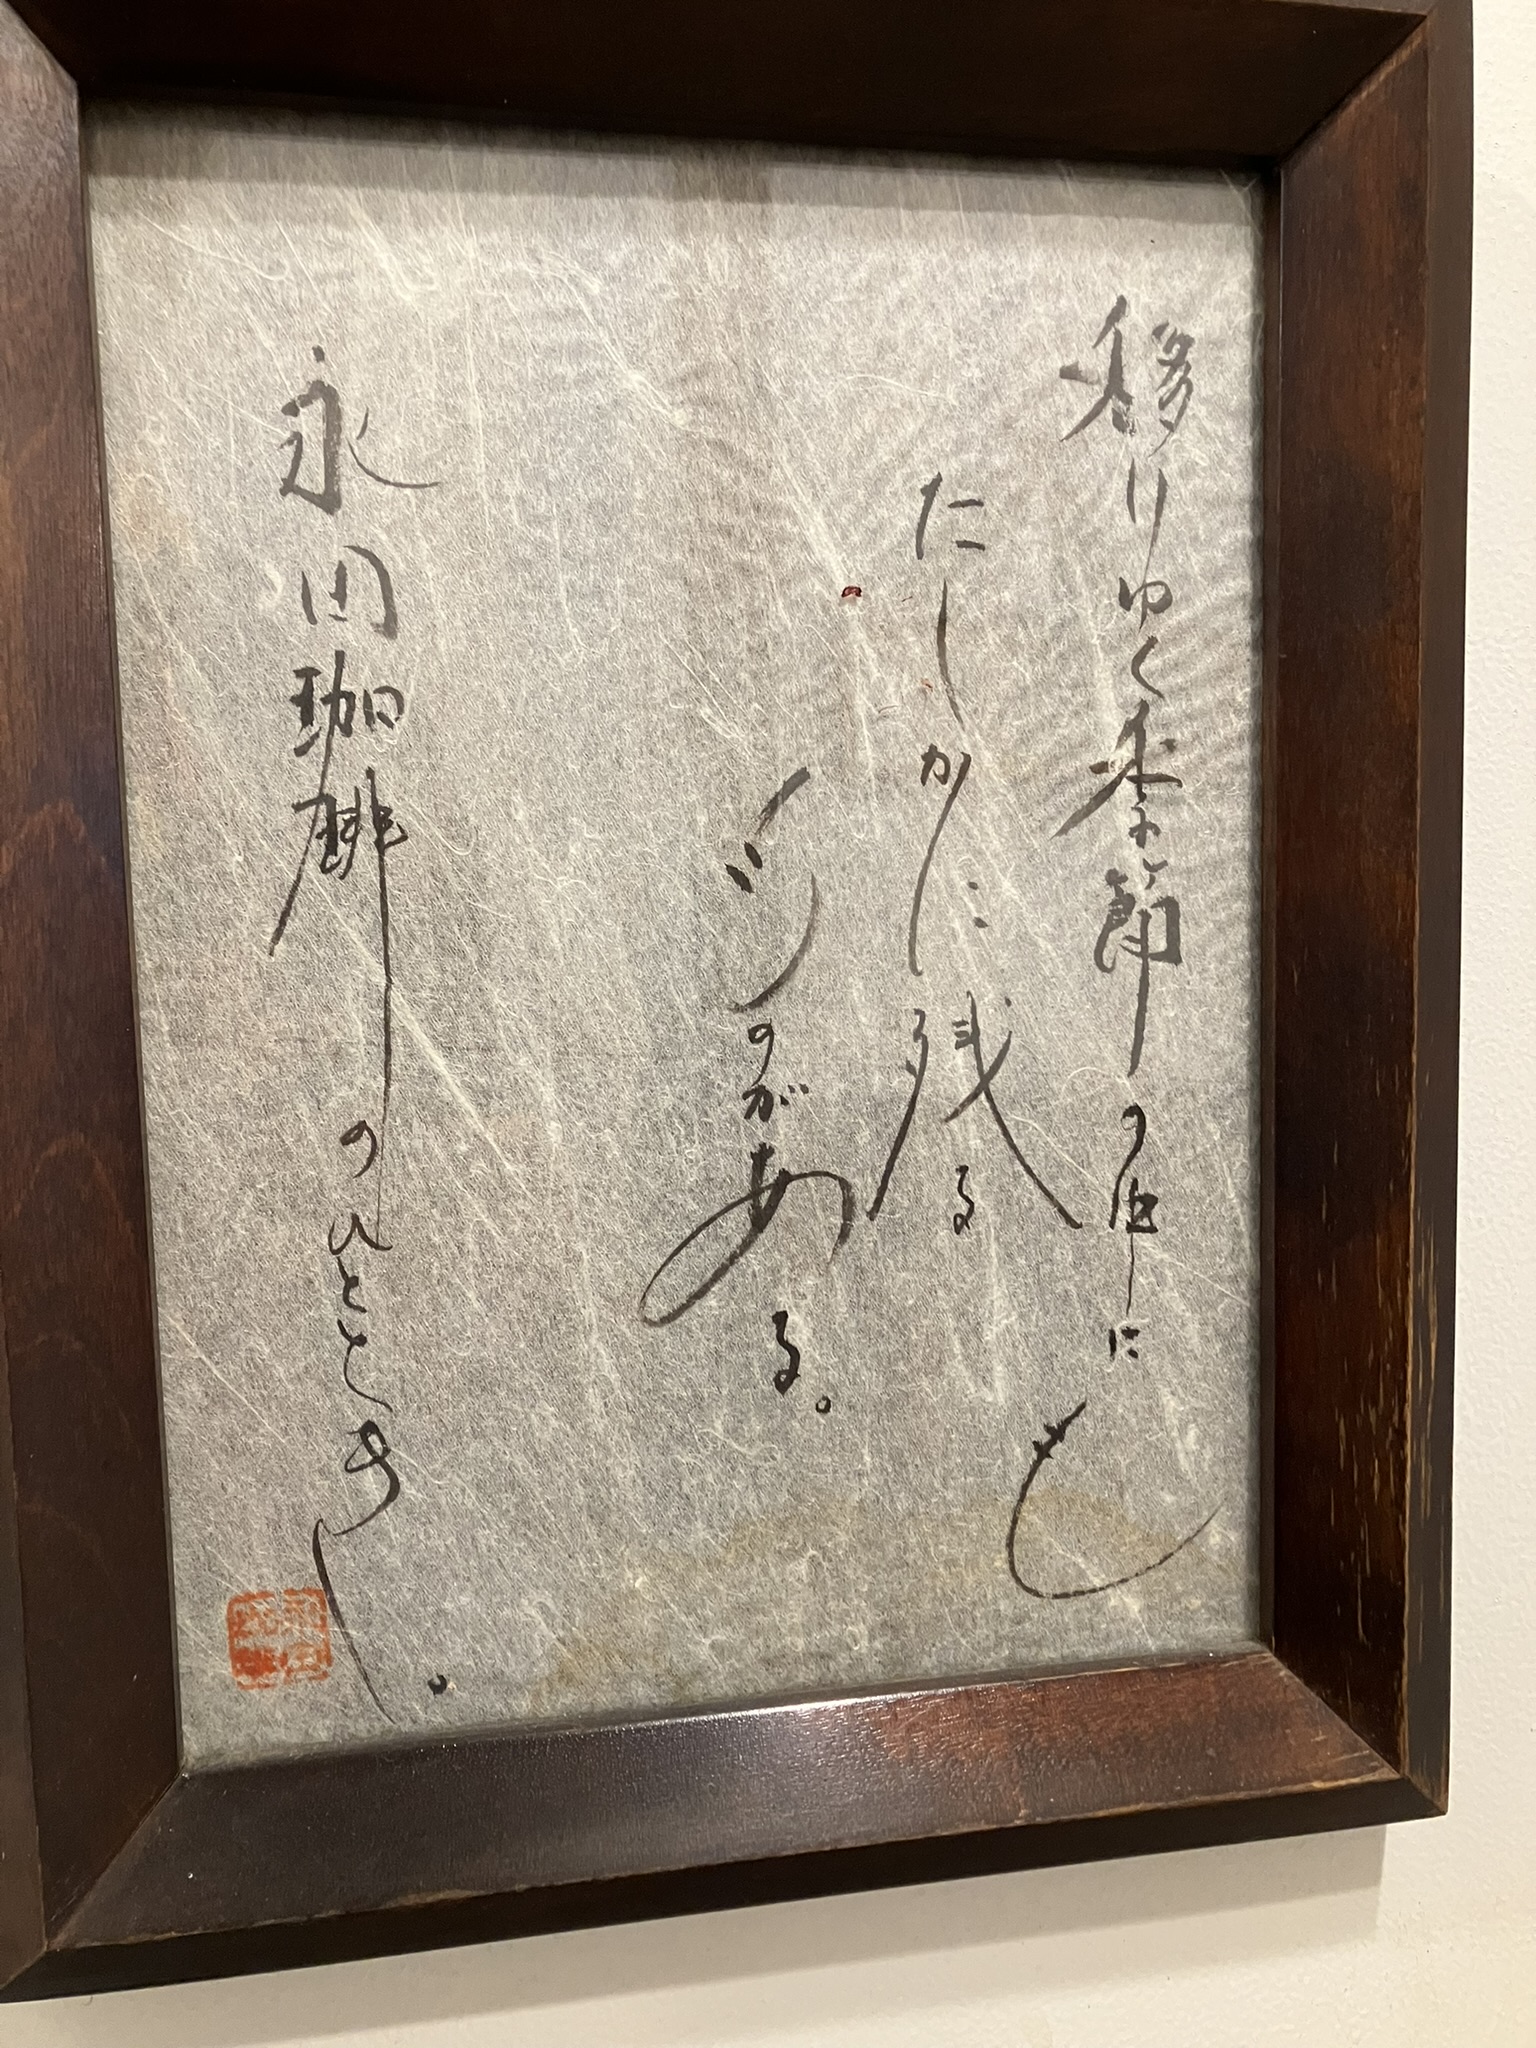 移りゆく季節の中にも
たしかに残る
ものがある。
永田珈琲のひととき